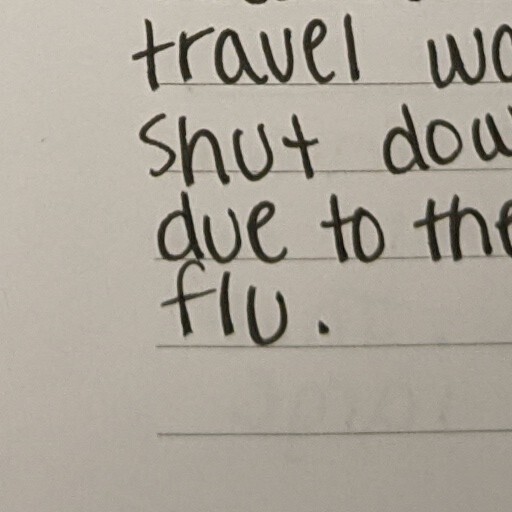 travel
shut
due to the
flu.